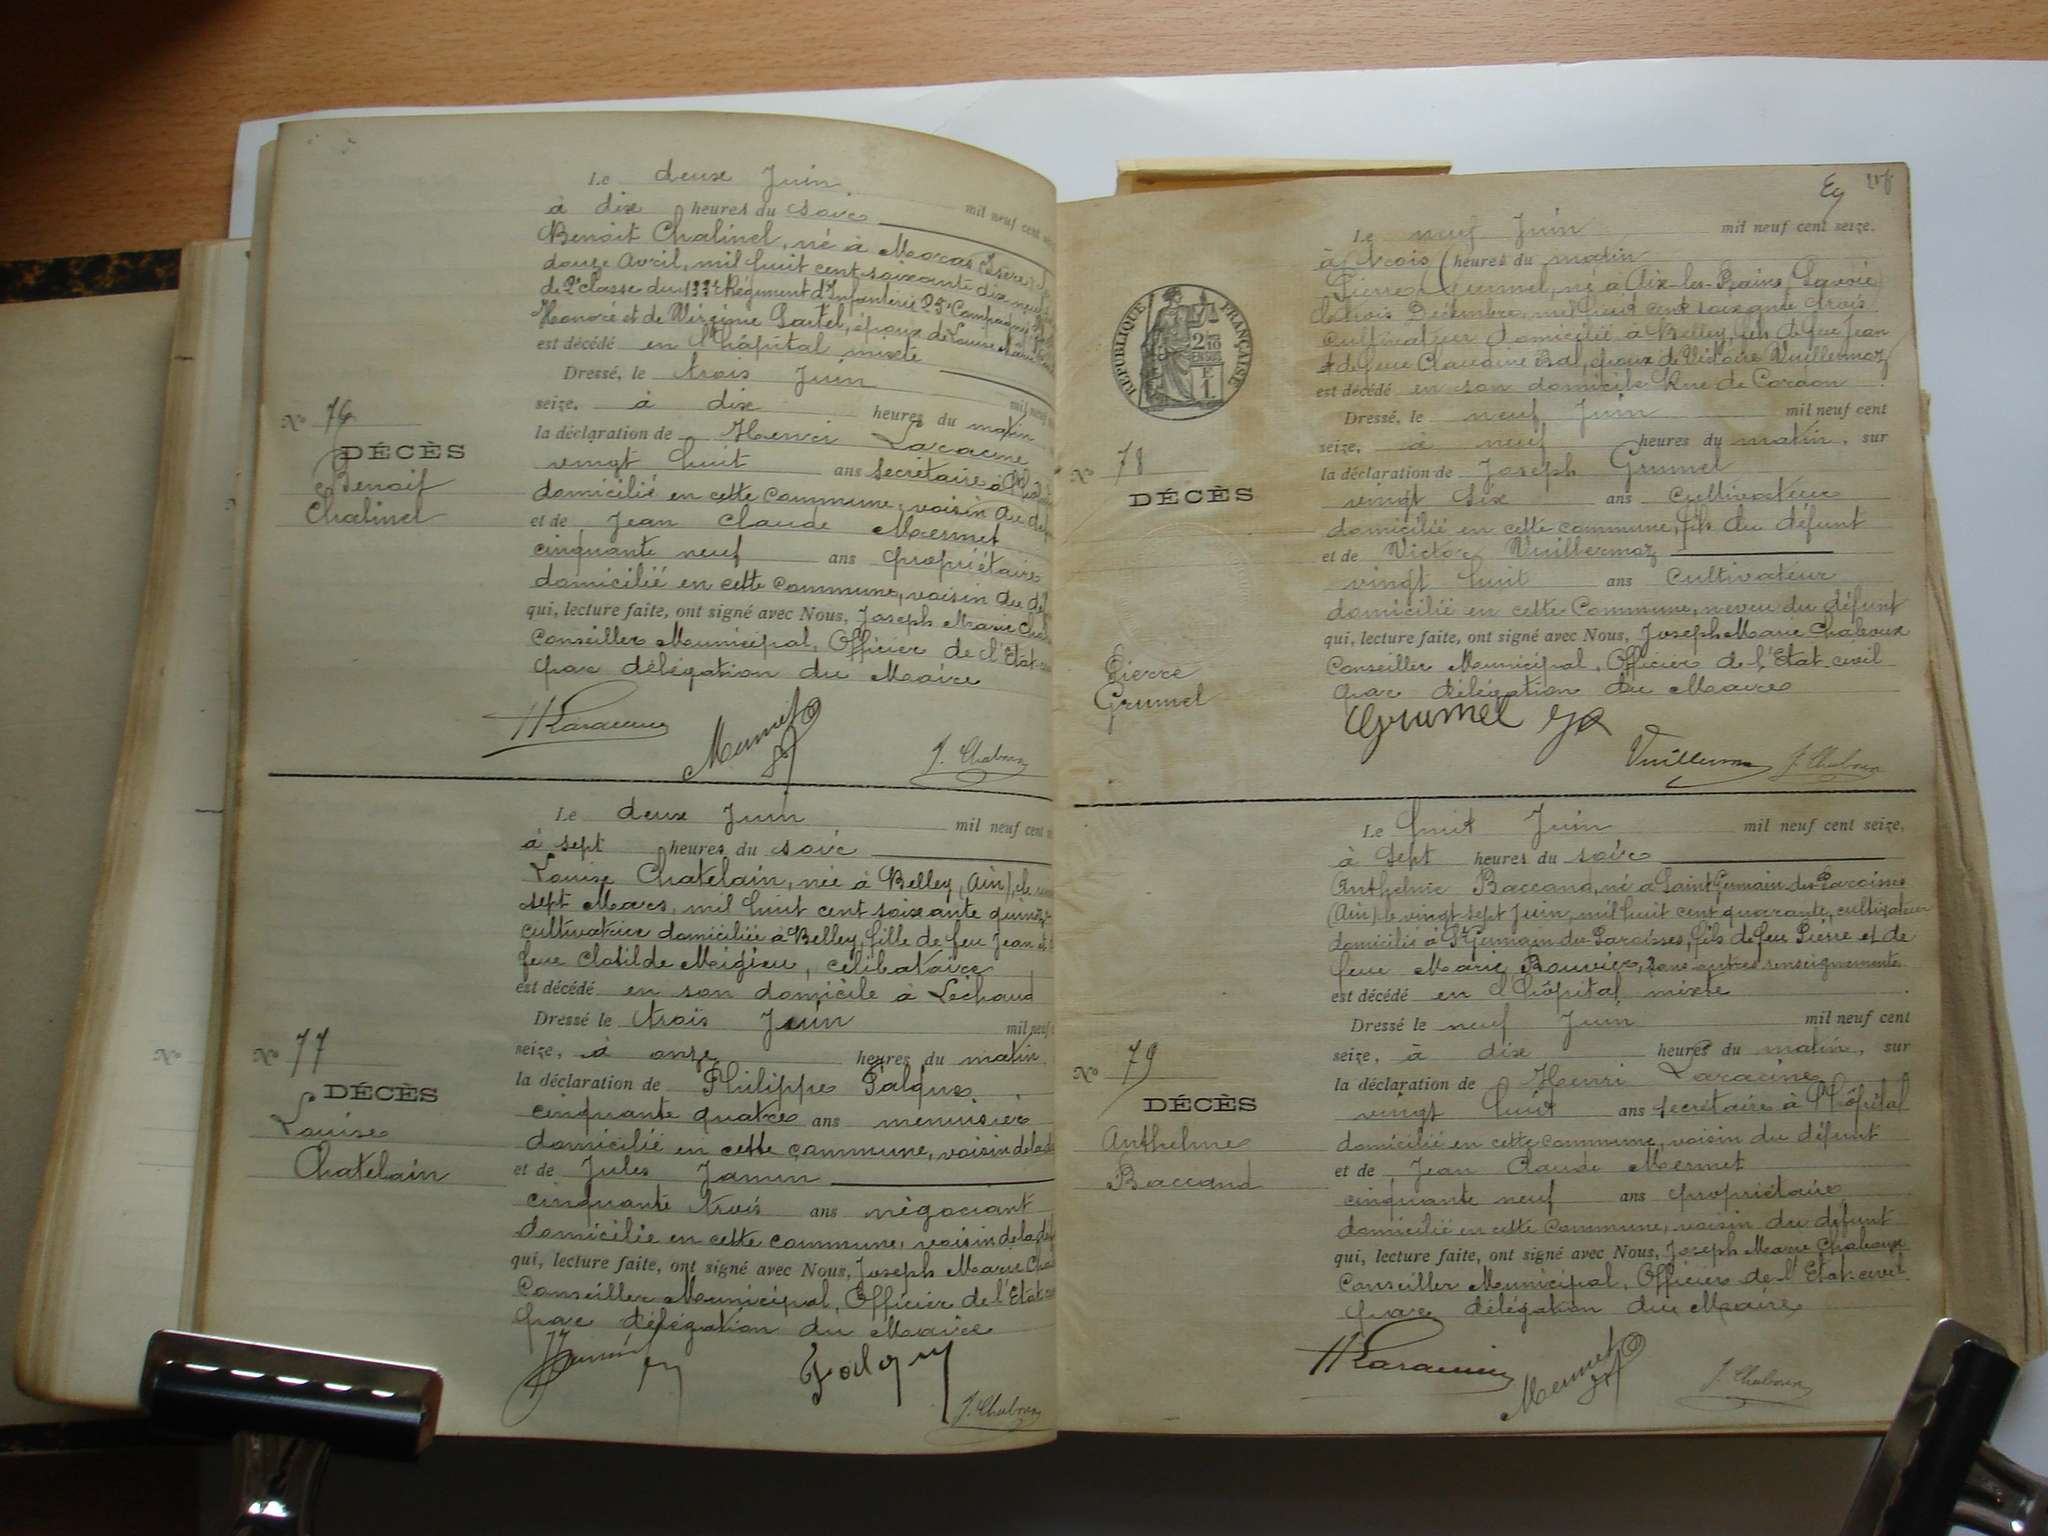 Le deux Juin mil neuf cent
à dix heures du soir
Benoit Chalinel, né à Moras (Isère)
douze Avril, mil huit cent soixante dix neuf
de 2e classe du 133e Régiment d'Infanterie 25e Compagnie
Honoré et de Virginie époux de Louise
est décédé en l'hôpital mixte
Dressé, le trois Juin mil neuf
seize, à dix heures du matin
la déclaration de Henri Laracine
vingt huit ans secrétaire à
domicilié en cette commune, voisin du
et de Jean Claude Mermet
cinquante neuf ans propriétaire
domicilié en cette commune, voisin du
qui, lecture faite, ont signé avec Nous, Joseph Marie
Conseiller Municipal, Officier de l'Etat
par délégation du Maire
No 76
DÉCÈS
Benoit
Chalinel
HLaracine
Mermet
J. Chaboux
Le deux Juin mil neuf cent
à sept heures du soir
Louise Chatelain, née à Belley, (Ain), le
sept Mars, mil huit cent soixante quinze
cultivatrice domiciliée à Belley, fille de feu Jean et
feue Clotilde Meigieu, célibataire
est décédé en son domicile à Lechaud
Dressé le trois Juin mil neuf
seize, à onze heures du matin
la déclaration de Philippe
cinquante quatre ans menuisier
domicilié en cette commune, voisin de la
et de Jules Janin
cinquante trois ans négociant
domicilié en cette commune, voisin de la
qui, lecture faite, ont signé avec Nous, Joseph Marie
Conseiller Municipal, Officier de l'Etat
par délégation du Maire
No 77
DÉCÈS
Louise
Chatelain
J. Chaboux
No
Le neuf Juin mil neuf cent seize.
à trois heures du matin
Pierre Grumel, né à Aix-les-Bains (Savoie)
le trois Décembre, mil huit cent soixante trois
cultivateur domicilié à Belley, fils de feu Jean
et de feue Claudine Bal, époux de Victoire Vuillermoz
est décédé en son domicile Rue de Cordon
Dressé, le neuf Juin mil neuf cent
seize, à neuf heures du matin, sur
la déclaration de Joseph Grumel
vingt six ans cultivateur
domicilié en cette commune, fils du défunt
et de Victor Vuillermoz
vingt huit ans cultivateur
domicilié en cette Commune, neveu du défunt
qui, lecture faite, ont signé avec Nous, Joseph Marie Chaboux
Conseiller Municipal, Officier de l'Etat-civil
par délégation du Maire
RÉPUBLIQUE FRANÇAISE
2/10 EN SUS
E 1.
No 78
DÉCÈS
Pierre
Grumel
Grumel
Vuillermoz
J. Chaboux
Le huit Juin mil neuf cent seize.
à sept heures du soir
Anthelme Baccand, né à Saint Germain-les-Paroisses
(Ain) le vingt sept Juin, mil huit cent quarante, cultivateur
domicilié à St Germain-les-Paroisses, fils de feu Pierre et de
feue Marie Bouvier, sans autres renseignements
est décédé en l'hôpital mixte
Dressé le neuf Juin mil neuf cent
seize, à dix heures du matin, sur
la déclaration de Henri Laracine
vingt huit ans secrétaire à l'hôpital
domicilié en cette commune, voisin du défunt
et de Jean Claude Mermet
cinquante neuf ans propriétaire
domicilié en cette commune, voisin du défunt
qui, lecture faite, ont signé avec Nous, Joseph Marie Chaboux
Conseiller Municipal, Officier de l'Etat-civil
par délégation du Maire
No 79
DÉCÈS
Anthelme
Baccand
HLaracine
Mermet
J. Chaboux